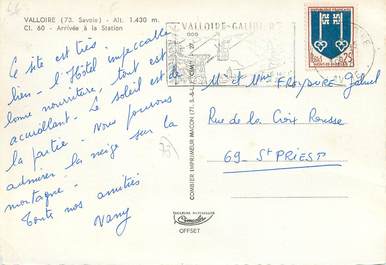 VALLOIRE (73. Savoie) - Alt. 1.430 m.
Cl. 60 - Arrivée à la Station
Ce site est très
bien - l'Hôtel impeccable
bonne nourriture, tout est
accueillant. Le soleil est de
la partie. Nous pouvons
admirer la neige sur la
montagne.
Toute nos amitiés
Vany
COMBIER IMPRIMEUR MACON (71. S.-&-L.)
OFFSET
VALLOIRE-GALIBIER
0,25
M et Mme FREYDURE Gabriel
Rue de la Croix Rousse
69 - St PRIEST